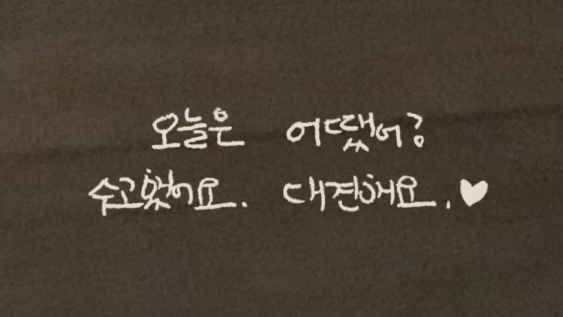 오늘은 어땠어?
수고했어요. 대견해요.♥